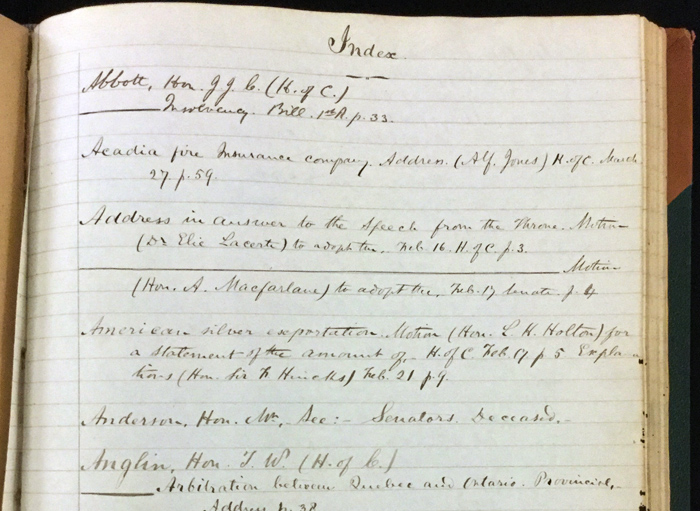 Index.
Abbott, Hon. J. J. C. (H. of C.)
Insolvency. Bill. 1st R. p. 33.
Acadia fire Insurance company. Address. (Alf. Jones) H. of C. March
27. p. 59.
Address in answer to the Speech from the Throne. Motion
(Dr. Elie Lacerte) to adopt the. Feb. 16. H. of C. p. 3.
Motion
(Hon. A. Macfarlane) to adopt the. Feb. 17 Senate. p. 4
American silver exportation. Motion (Hon. L. H. Holton) for
a statement of the amount of. H. of C. Feb. 17. p. 5 Expla-
tions (Hon. Sir F. Hincks) Feb. 21 p. 9.
Anderson, Hon. Mr., See:- Senators. Deceased.-
Anglin, Hon. T. W. (H. of C.)
Arbitration between Quebec and Ontario. Provincial,-
Address p. 38